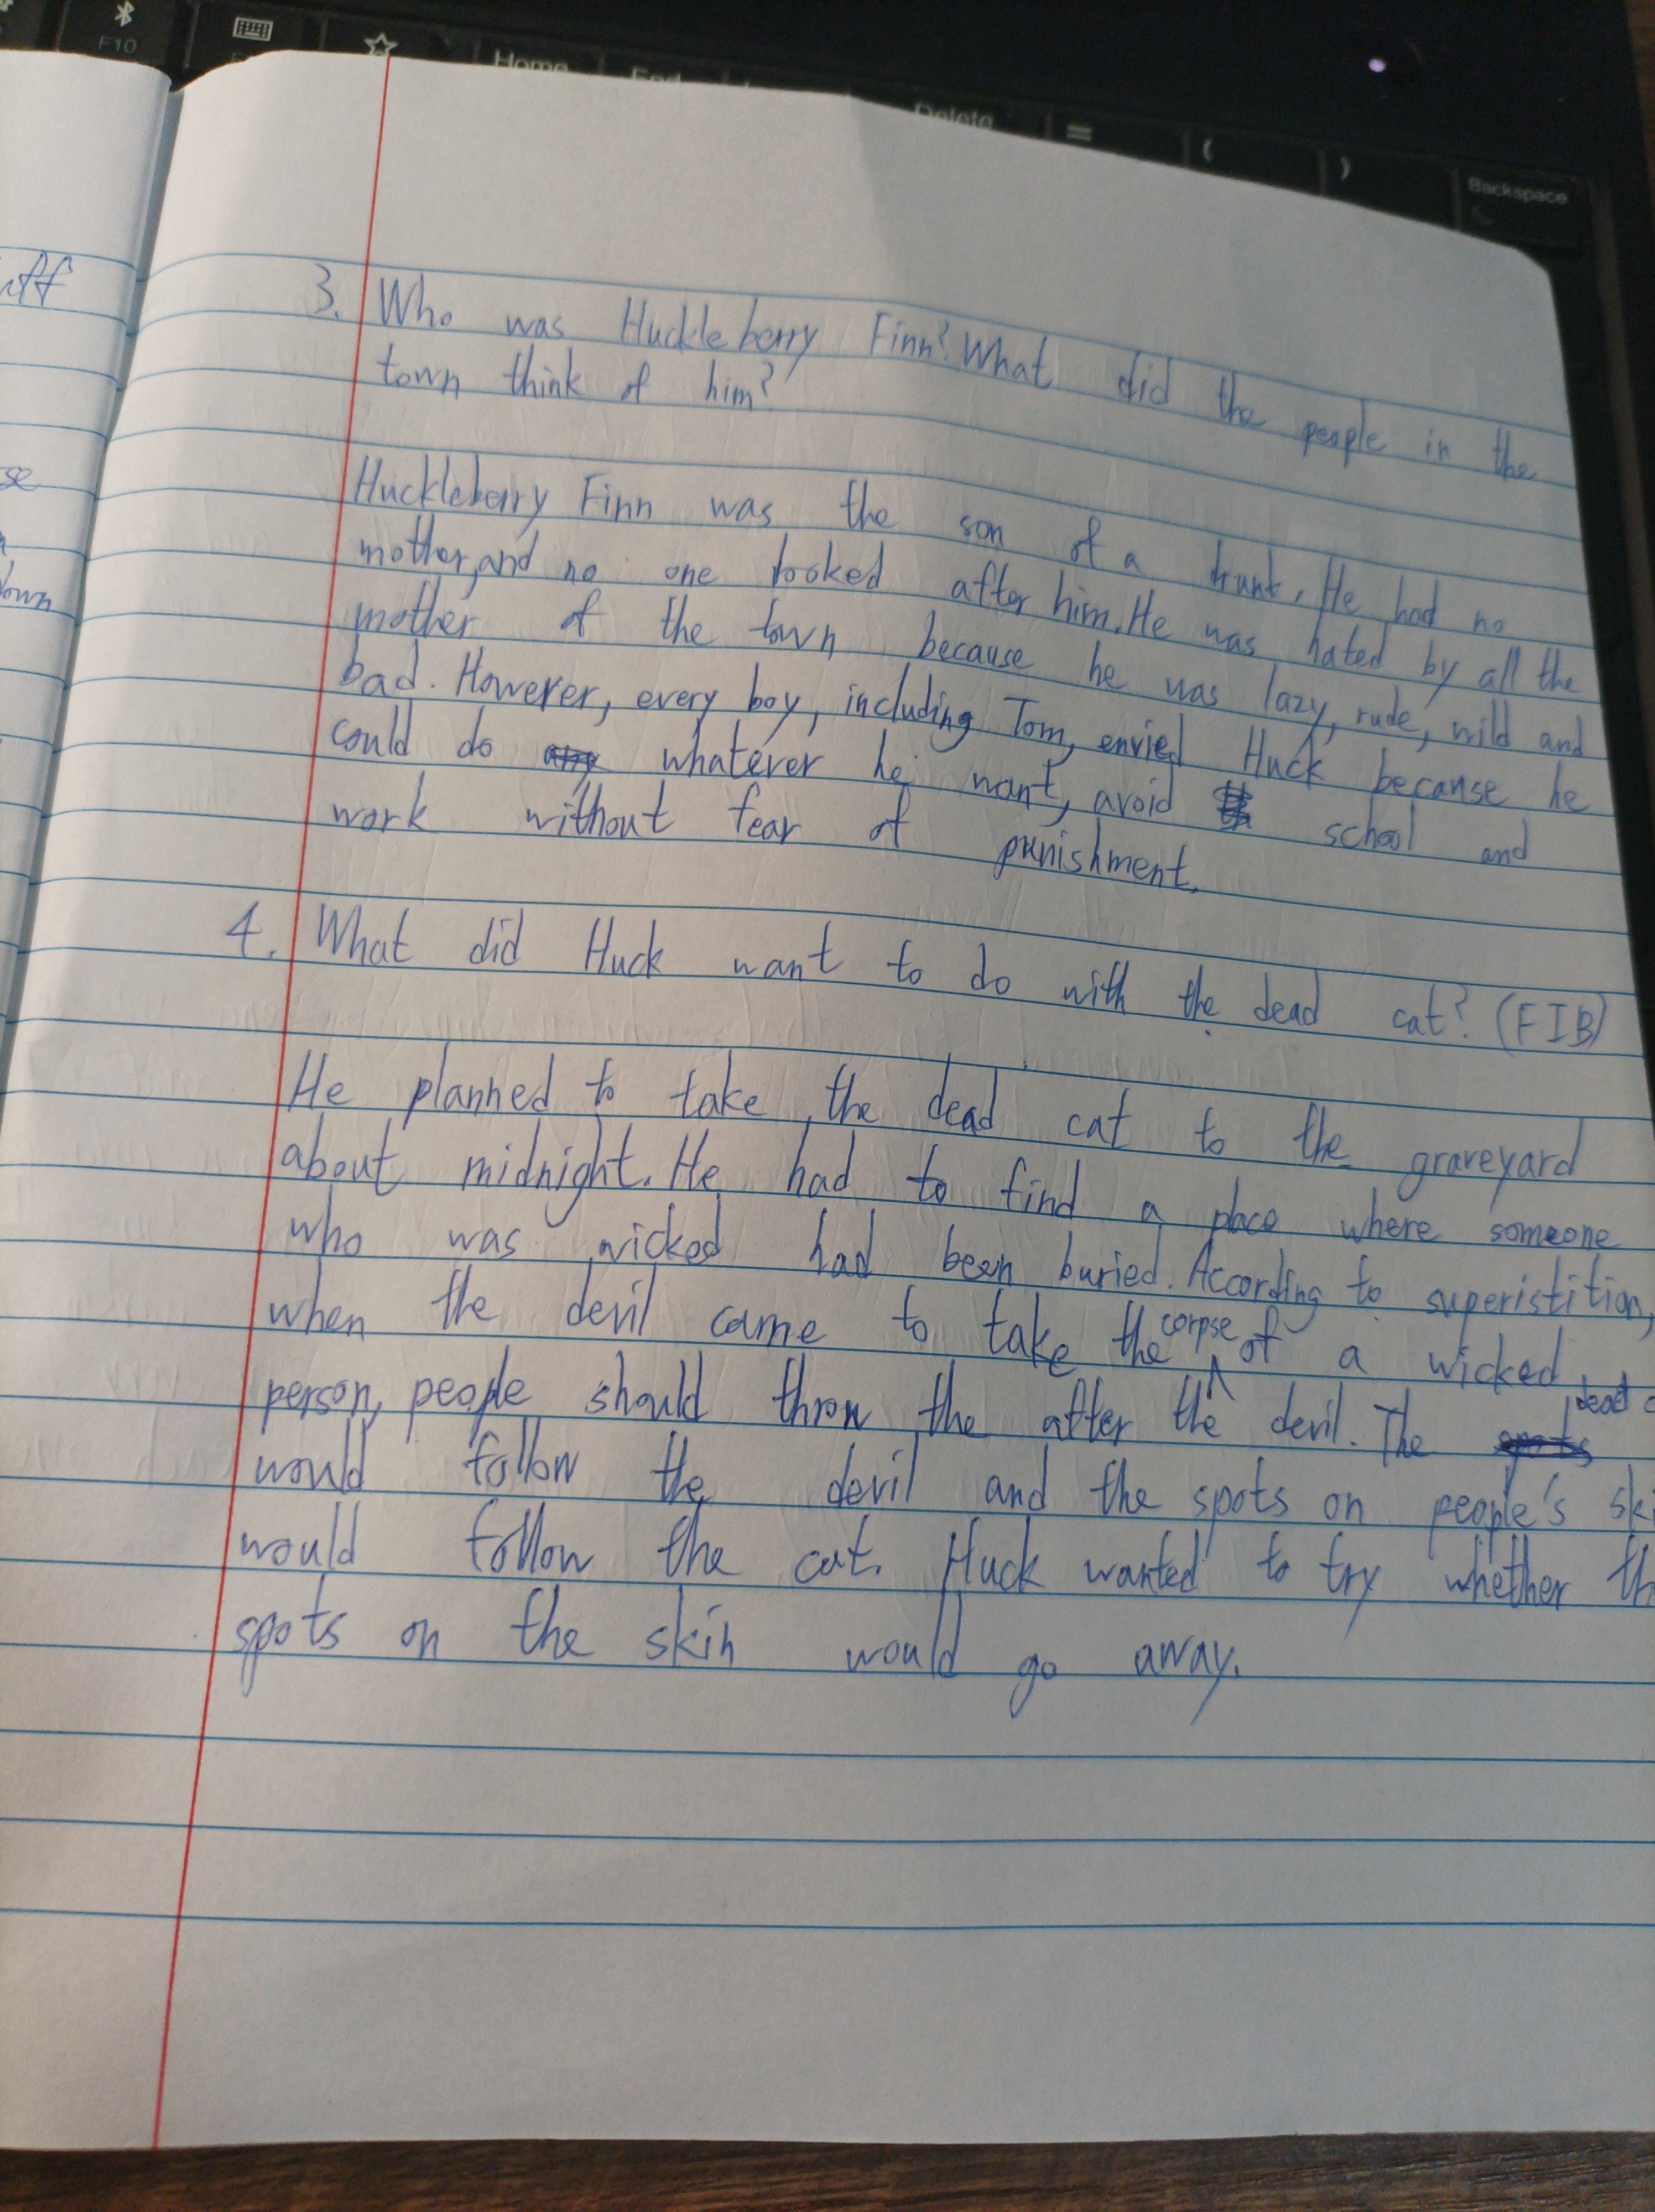 F10
Home
End
Delete
=
(
)
Backspace
se
own
3. Who was Huckleberry Finn? What did the people in the
town think of him?
Huckleberry Finn was the son of a drunk. He had no
mother, and no one looked after him. He was hated by all the
mother of the town because he was lazy, rude, wild and
bad. However, every boy, including Tom, envied Huck because he
could do whatever he want, avoid school and
work without fear of punishment.
4. What did Huck want to do with the dead cat? (FIB)
He planned to take the dead cat to the graveyard
about midnight. He had to find a place where someone
who was wicked had been buried. According to superistition,
when the devil came to take the corpse of a wicked
person, people should throw the after the devil. The dead
would follow the devil and the spots on people's
would follow the cat. Huck wanted to try whether
spots on the skin would go away.